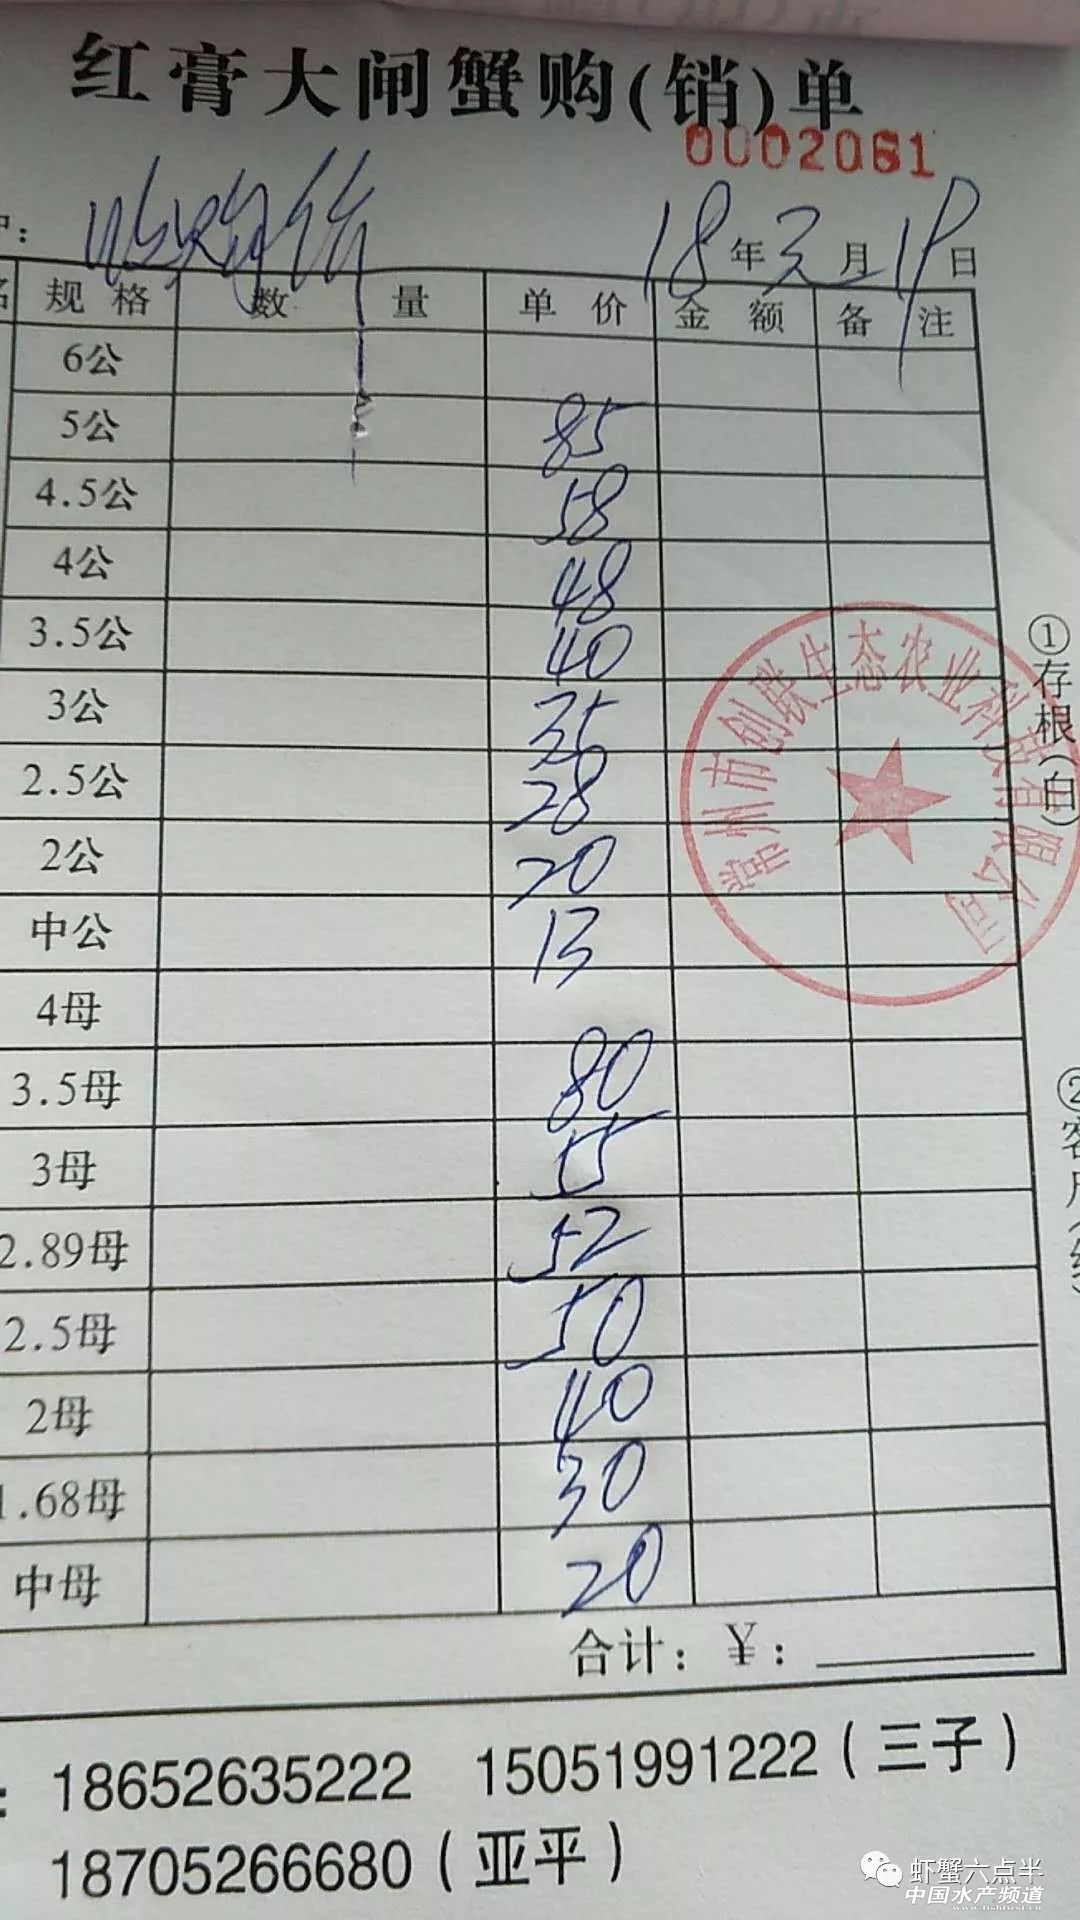 红膏大闸蟹购(销)单
0002061
户:收购价 18年3月19日
名 规格 数量 单价 金额 备注
6公
5公 85
4.5公 58
4公 48
3.5公 40
3公 35
2.5公 28
2公 20
中公 13
4母
3.5母 80
3母 55
2.89母 52
2.5母 50
2母 40
1.68母 30
中母 20
合计:¥:
18652635222 15051991222(三子)
18705266680(亚平)
①存根(白)
②客户(红)
常州市创联生态农业科技有限公司
虾蟹六点半
中国水产频道
www.fishfirst.cn